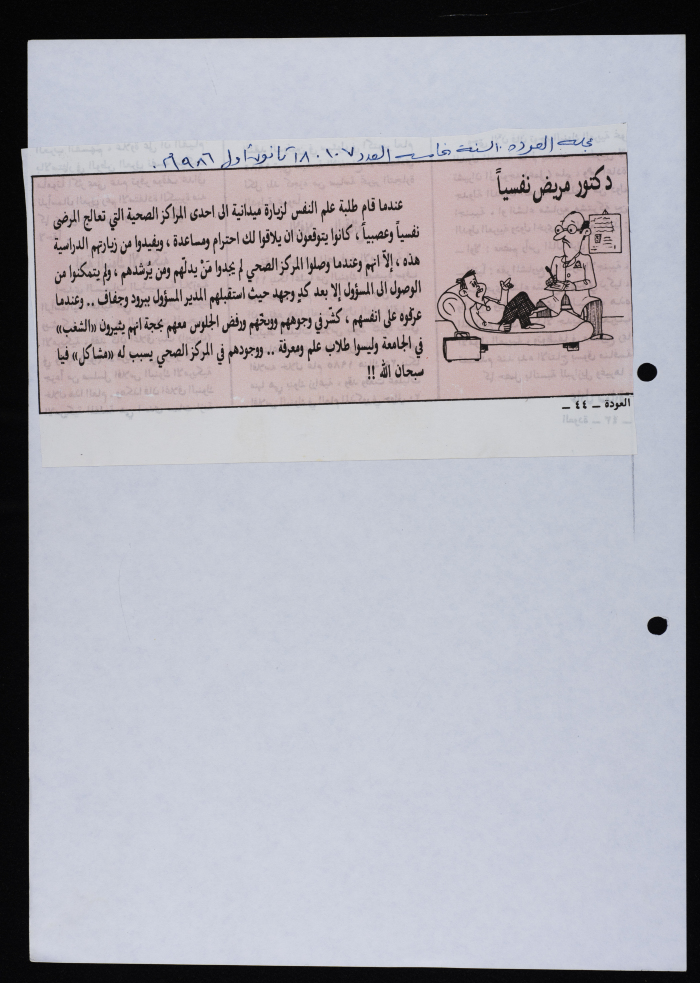 مجلة العودة . السنة الخامسة العدد ١٠٧ . ١٨ كانون أول ١٩٨٦ .
دكتور مريض نفسياً
عندما قام طلبة علم النفس لزيارة ميدانية الى احدى المراكز الصحية التي تعالج المرضى
نفسياً وعصبياً ، كانوا يتوقعون ان يلاقوا لك احترام ومساعدة ، ويفيدوا من زيارتهم الدراسية
هذه ، إلاّ انهم وعندما وصلوا المركز الصحي لم يجدوا مَنْ يدلّهم ومن يُرشدهم ، ولم يتمكنوا من
الوصول الى المسؤول إلا بعد كدٍ وجهد حيث استقبلهم المدير المسؤول ببرود وجفاف .. وعندما
عرّفوه على انفسهم ، كشّر في وجوههم ووبخهم ورفض الجلوس معهم بحجة انهم يثيرون «الشغب»
في الجامعة وليسوا طلاب علم ومعرفة .. ووجودهم في المركز الصحي يسبب له «مشاكل» فيا
سبحان الله !!
العودة ــ ٤٤ ــ